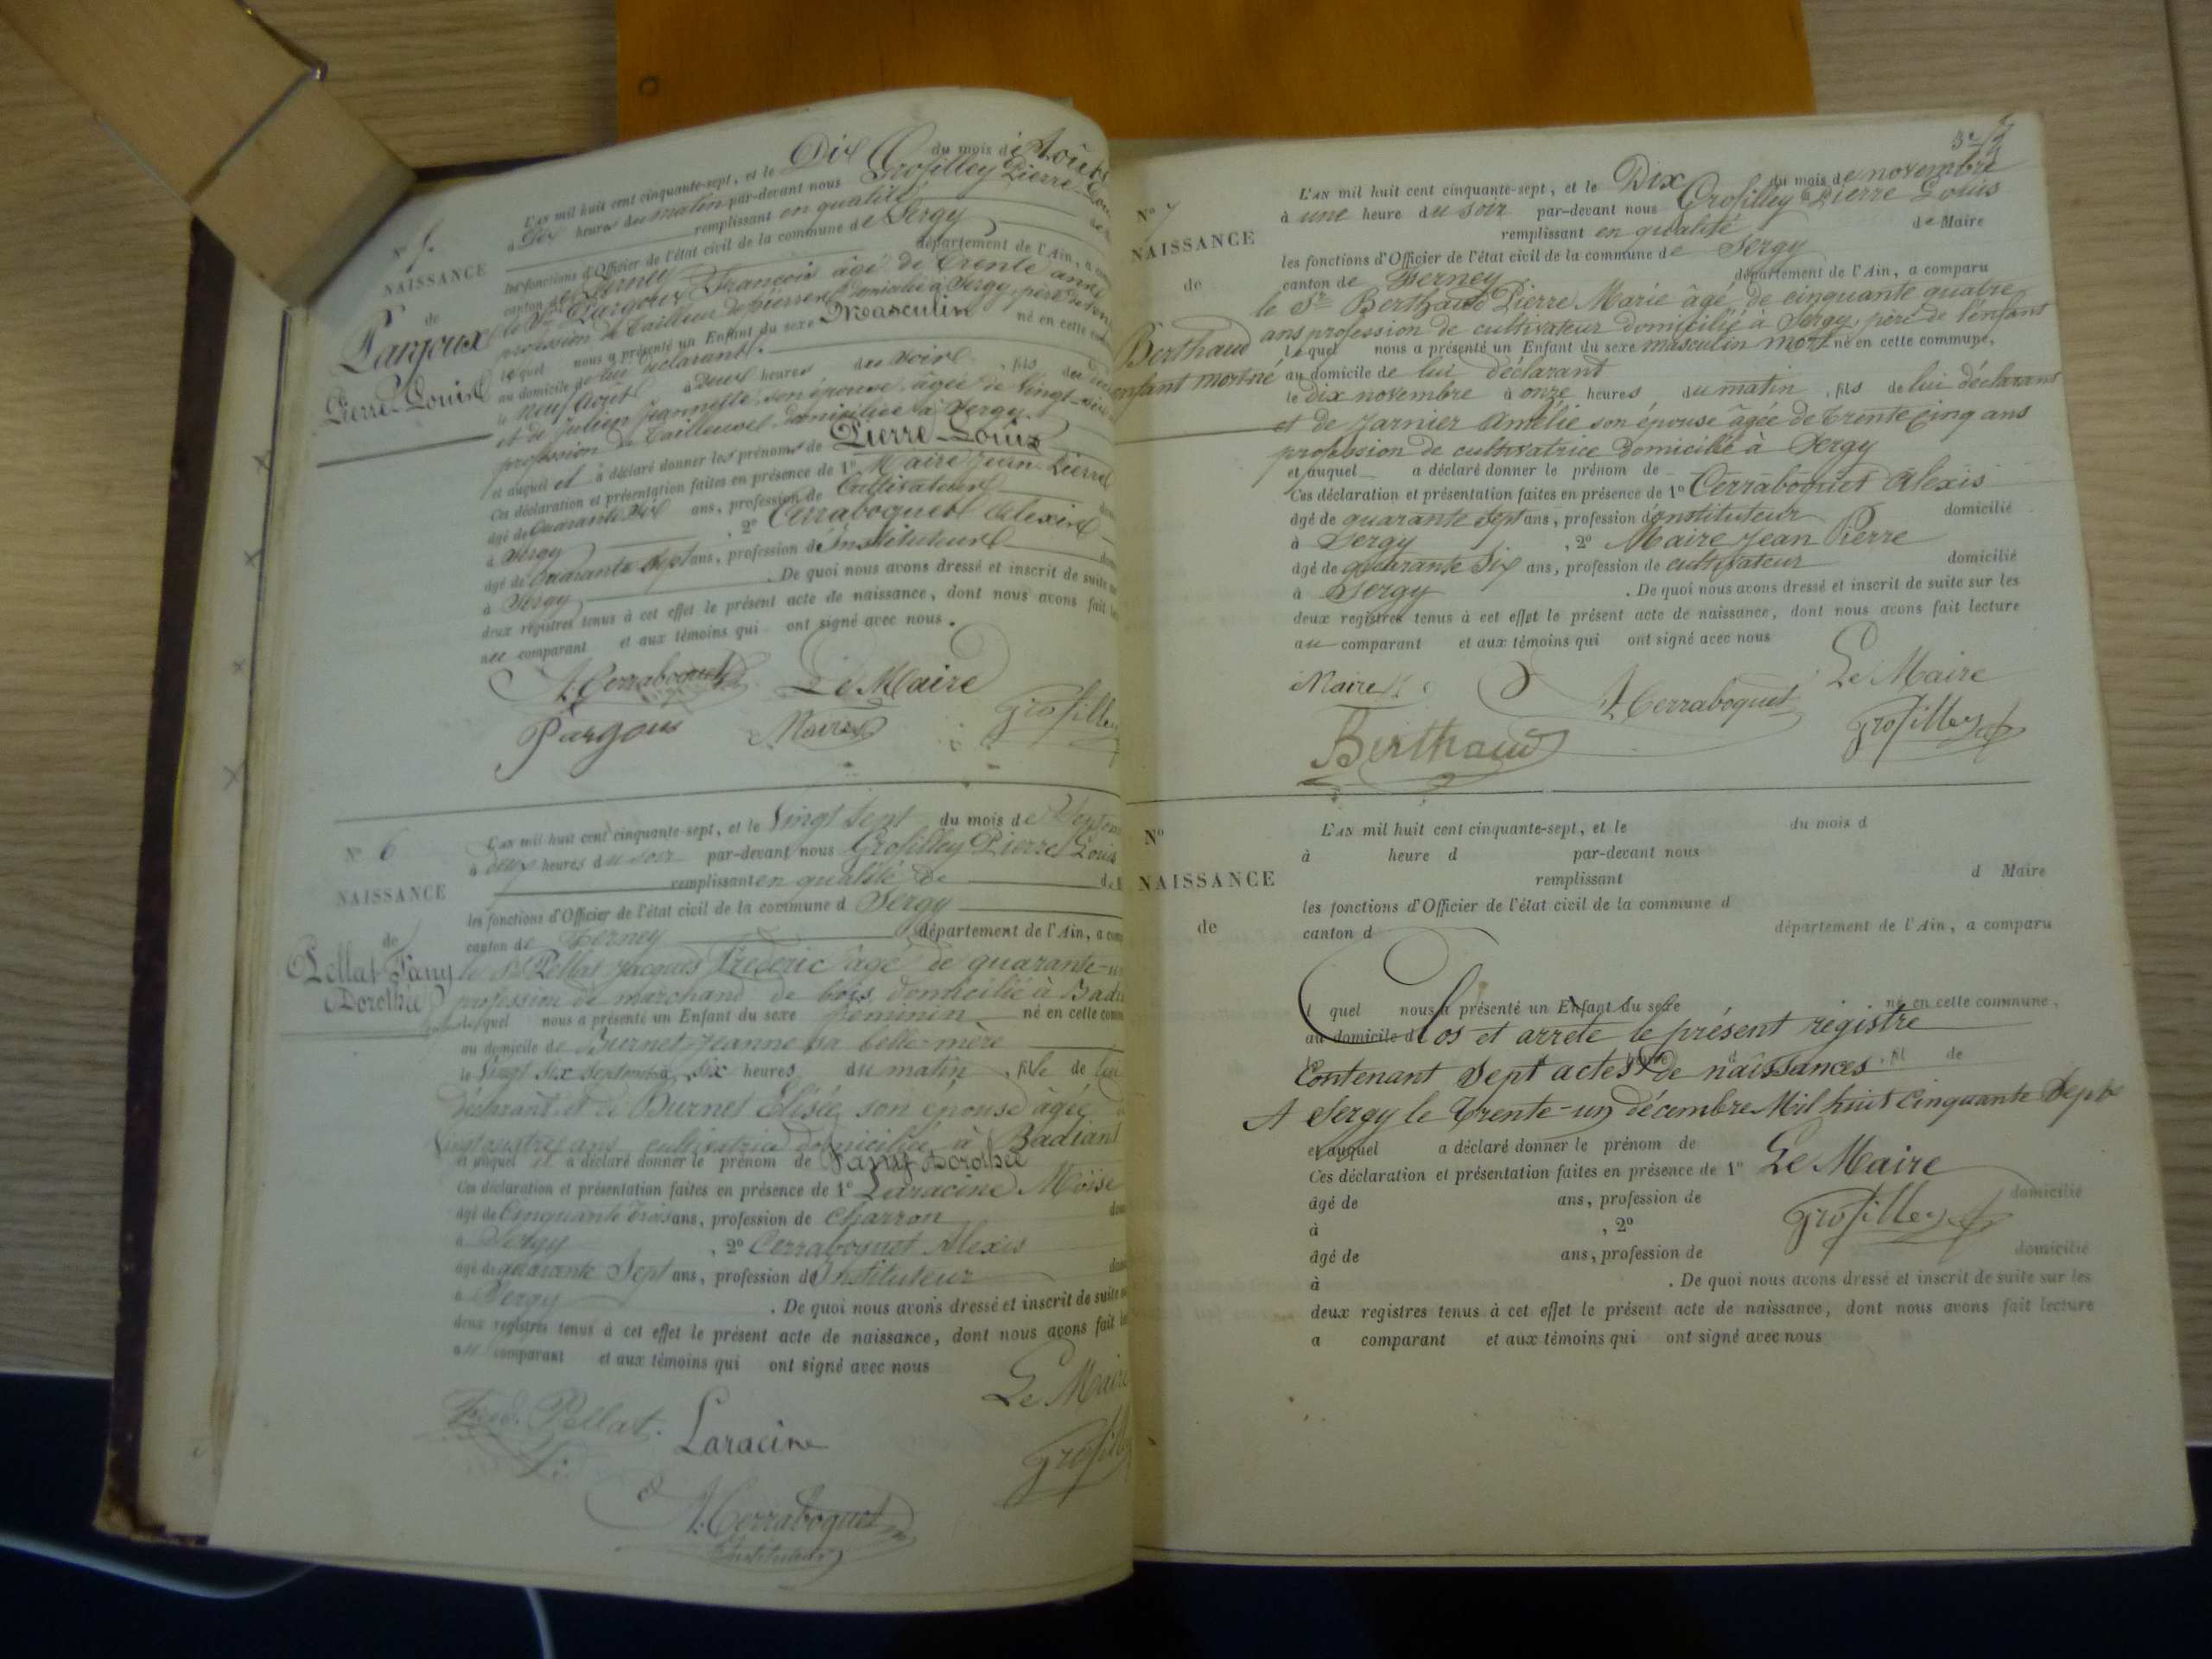 N° 5.
NAISSANCE
de
Pierre Louis
L'AN mil huit cent cinquante-sept, et le Dix du mois d'Août
à Dix heures du matin par-devant nous Grosilley Pierre Louis
remplissant en qualité de
les fonctions d'Officier de l'état civil de la commune de Sergy
canton de Ferney département de l'Ain, a comparu
le Sr François âgé de trente ans
profession de tailleur de pierres domicilié à Sergy, père de
lequel nous a présenté un Enfant du sexe Masculin né en cette
au domicile de lui déclarant.
le neuf Août à deux heures du soir, fils de
et de Julien Jeannette, son épouse, âgée de vingt
profession de tailleuse, domiciliée à Sergy
et auquel il a déclaré donner les prénoms de Pierre-Louis
Ces déclaration et présentation faites en présence de 1° Maire Jean Pierre
âgé de quarante six ans, profession de Cultivateur
à Sergy, 2° Cerraboquet Alexis
âgé de quarante sept ans, profession d'Instituteur
à Sergy. De quoi nous avons dressé et inscrit de suite
deux registres tenus à cet effet le présent acte de naissance, dont nous avons fait
au comparant et aux témoins qui ont signé avec nous.
A. Cerraboquet Le Maire
Pargoux Maire Grosilley
N° 6
NAISSANCE
de
Pellat Fany
Dorothée
L'AN mil huit cent cinquante-sept, et le Vingt sept du mois de
à deux heures du soir par-devant nous Grosilley Pierre Louis
remplissant en qualité de
les fonctions d'Officier de l'état civil de la commune d Sergy
canton de Ferney département de l'Ain, a
le Sr Pellat Jacques Frédéric âgé de quarante-un
profession de marchand de bois, domicilié à
lequel nous a présenté un Enfant du sexe féminin né en cette
au domicile de Burnet Jeanne sa belle-mère
le vingt six septembre à six heures du matin, fille de lui
déclarant et de Burnet Elisée son épouse âgée
vingt quatre ans cultivatrice domiciliée à Badian
et auquel il a déclaré donner le prénom de Fany Dorothée
Ces déclaration et présentation faites en présence de 1° Laracine Moïse
âgé de Cinquante trois ans, profession de charron
à Sergy, 2° Cerraboquet Alexis
âgé de quarante Sept ans, profession d'Instituteur
à Sergy. De quoi nous avons dressé et inscrit de suite
deux registres tenus à cet effet le présent acte de naissance, dont nous avons fait
au comparant et aux témoins qui ont signé avec nous
Le Maire
Fred. Pellat. Laracine
A. Cerraboquet
Instituteur
N° 7
NAISSANCE
de
Berthaud
enfant mort né
L'AN mil huit cent cinquante-sept, et le Dix du mois de novembre
à une heure du soir par-devant nous Grosilley Pierre Louis
remplissant en qualité de Maire
les fonctions d'Officier de l'état civil de la commune de Sergy
canton de Ferney département de l'Ain, a comparu
le Sr Berthaud Pierre Marie âgé de cinquante quatre
ans profession de cultivateur domicilié à Sergy, père de l'enfant
lequel nous a présenté un Enfant du sexe masculin mort né en cette commune,
au domicile de lui déclarant
le dix novembre à onze heures du matin, fils de lui déclarant
et de Jarnier Amélie son épouse âgée de trente cinq ans
profession de cultivatrice domiciliée à Sergy
et auquel a déclaré donner le prénom de
Ces déclaration et présentation faites en présence de 1° Cerraboquet Alexis
âgé de quarante sept ans, profession d'instituteur domicilié
à Sergy, 2° Maire Jean Pierre
âgé de quarante Six ans, profession de cultivateur domicilié
à Sergy. De quoi nous avons dressé et inscrit de suite sur les
deux registres tenus à cet effet le présent acte de naissance, dont nous avons fait lecture
au comparant et aux témoins qui ont signé avec nous
Maire A. Cerraboquet Le Maire
Berthaud Grosilley
N°
NAISSANCE
de
L'AN mil huit cent cinquante-sept, et le du mois d
à heure d par-devant nous
remplissant d Maire
les fonctions d'Officier de l'état civil de la commune d
canton d département de l'Ain, a comparu
l quel nous a présenté un Enfant du sexe né en cette commune,
au domicile d
Clos et arrete le présent registre
Contenant Sept actes de naissances, fil de
A Sergy le trente-un décembre Mil huit Cinquante Sept
et auquel a déclaré donner le prénom de
Ces déclaration et présentation faites en présence de 1° Le Maire
âgé de ans, profession de domicilié
à , 2° Grosilley
âgé de ans, profession de domicilié
à . De quoi nous avons dressé et inscrit de suite sur les
deux registres tenus à cet effet le présent acte de naissance, dont nous avons fait lecture
a comparant et aux témoins qui ont signé avec nous